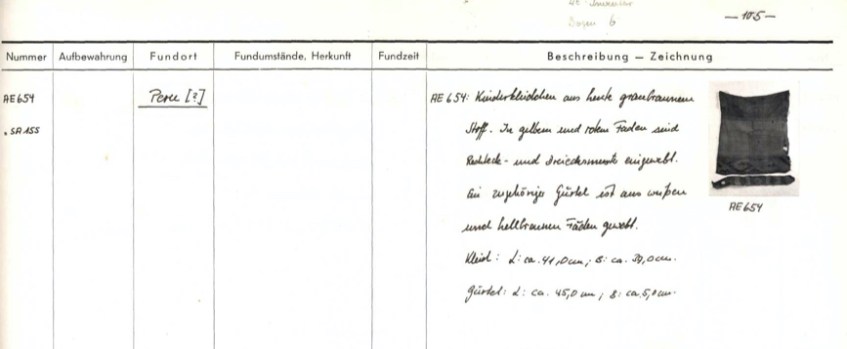 AE-Inventar
Bogen 6
— 105 —
Nummer Aufbewahrung Fundort Fundumstände, Herkunft Fundzeit Beschreibung — Zeichnung
AE 654 Peru [?] AE 654: Kinderkleidchen aus heute graubraunem
. SA 155 Stoff. In gelbem und rotem Faden sind
Rechteck- und Dreiecksmuster eingewebt.
Ein zugehöriger Gürtel ist aus weißen
und hellbraunen Fäden gewebt.
Kleid: L: ca. 41,0 cm; B: ca. 39,0 cm.
Gürtel: L: ca. 45,0 cm; B: ca. 5,0 cm.
AE 654